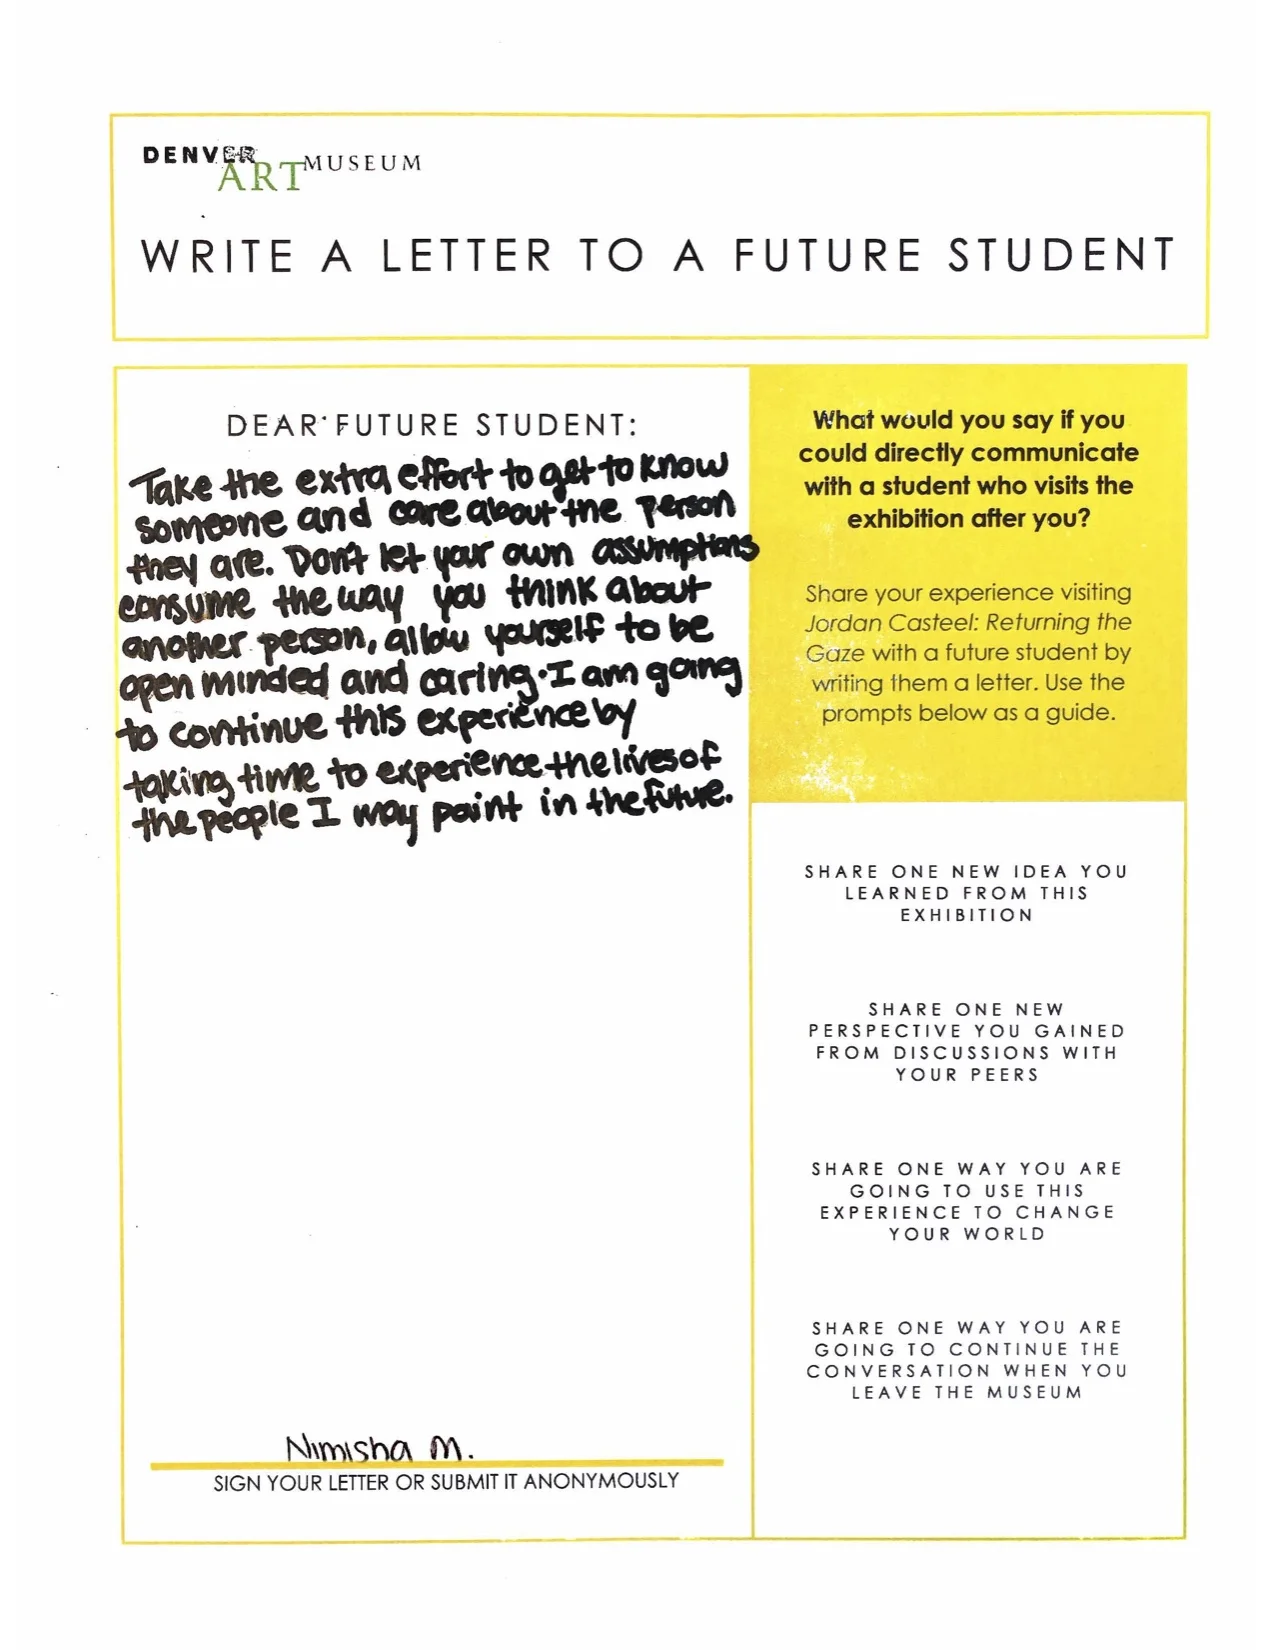 DENVER
ART MUSEUM
WRITE A LETTER TO A FUTURE STUDENT
DEAR FUTURE STUDENT:
Take the extra effort to get to know
someone and care about the person
they are. Don't let your own assumptions
consume the way you think about
another person, allow yourself to be
open minded and caring. I am going
to continue this experience by
taking time to experience the lives of
the people I may paint in the future.
Nimisha M.
SIGN YOUR LETTER OR SUBMIT IT ANONYMOUSLY
What would you say if you
could directly communicate
with a student who visits the
exhibition after you?
Share your experience visiting
Jordan Casteel: Returning the
Gaze with a future student by
writing them a letter. Use the
prompts below as a guide.
SHARE ONE NEW IDEA YOU
LEARNED FROM THIS
EXHIBITION
SHARE ONE NEW
PERSPECTIVE YOU GAINED
FROM DISCUSSIONS WITH
YOUR PEERS
SHARE ONE WAY YOU ARE
GOING TO USE THIS
EXPERIENCE TO CHANGE
YOUR WORLD
SHARE ONE WAY YOU ARE
GOING TO CONTINUE THE
CONVERSATION WHEN YOU
LEAVE THE MUSEUM